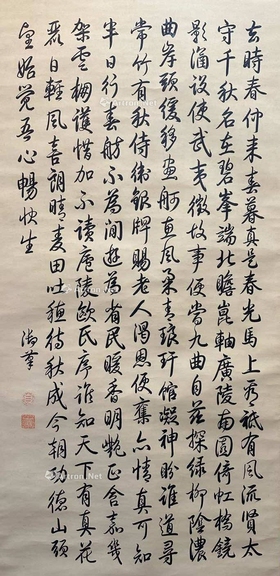 去時春仲來春暮真是春光馬上看祇有風流賢太
守千秋名在碧峯端北瞻崑軸廣陵南園倚虹橋鏡
影涵設使武夷徵故事便當九曲自茲探綠柳陰濃
曲岸頭緩移畫舸直風柔青琅玕館凝神盼誰道尋
常竹有秋侍衛銀牌賜老人渴恩優舊亦情真可知
半日行春舫不為閒遊為省民暖香明艷正含嘉幾
架雲棚護惜加不讀廬陵歐氏序誰知天下有真花
麗日輕風喜朗晴麥田吐穎待秋成今朝功德山頭
望始覺吾心暢快生
御筆